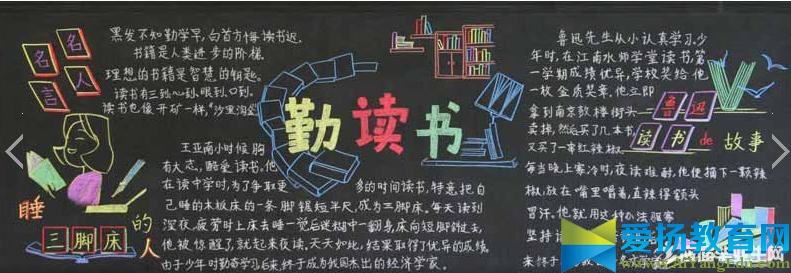 名人名言
黑发不知勤学早,白首方悔读书迟。
书籍是人类进步的阶梯。
理想的书籍是智慧的钥匙。
读书有三:心到、眼到、口到。
读书也像开矿一样,“沙里淘金”
勤读书
睡三脚床的人
王亚南小时候胸
有大志,酷爱读书。他
在读中学时,为了争取更
多的时间读书,特意把自
己睡的木板床的一条脚锯短半尺,成为三脚床。每天读到
深夜,疲劳时上床去睡一觉后迷糊中一翻身,床向短脚倾去,
他被惊醒了,就起来夜读。天天如此,结果取得了优异的成绩。
由于少年时勤奋学习后来,终于成为我国杰出的经济学家。
鲁迅读书de故事
鲁迅先生从小认真学习。少
年时,在江南水师学堂读书,第
一学期成绩优异,学校奖给他
一枚金质奖章,他立即
拿到南京鼓楼街头
卖掉,然后买了几本书,
又买了一串红辣椒
每当晚上寒冷时,夜读难耐,他便摘下一颗辣
椒,放在嘴里嚼着,直辣得额头
冒汗。他就用这种办法驱寒
坚持读书
来终于
爱扬教育网